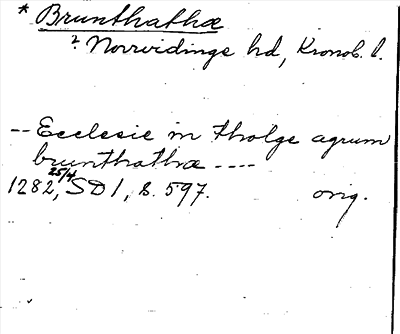 * Brunthathæ
? Norrvidinge hd, Kronob. l.
-- Ecclesie in tholge agrum
brunthathæ ----
1282 25/4, SD 1, s. 597. orig.